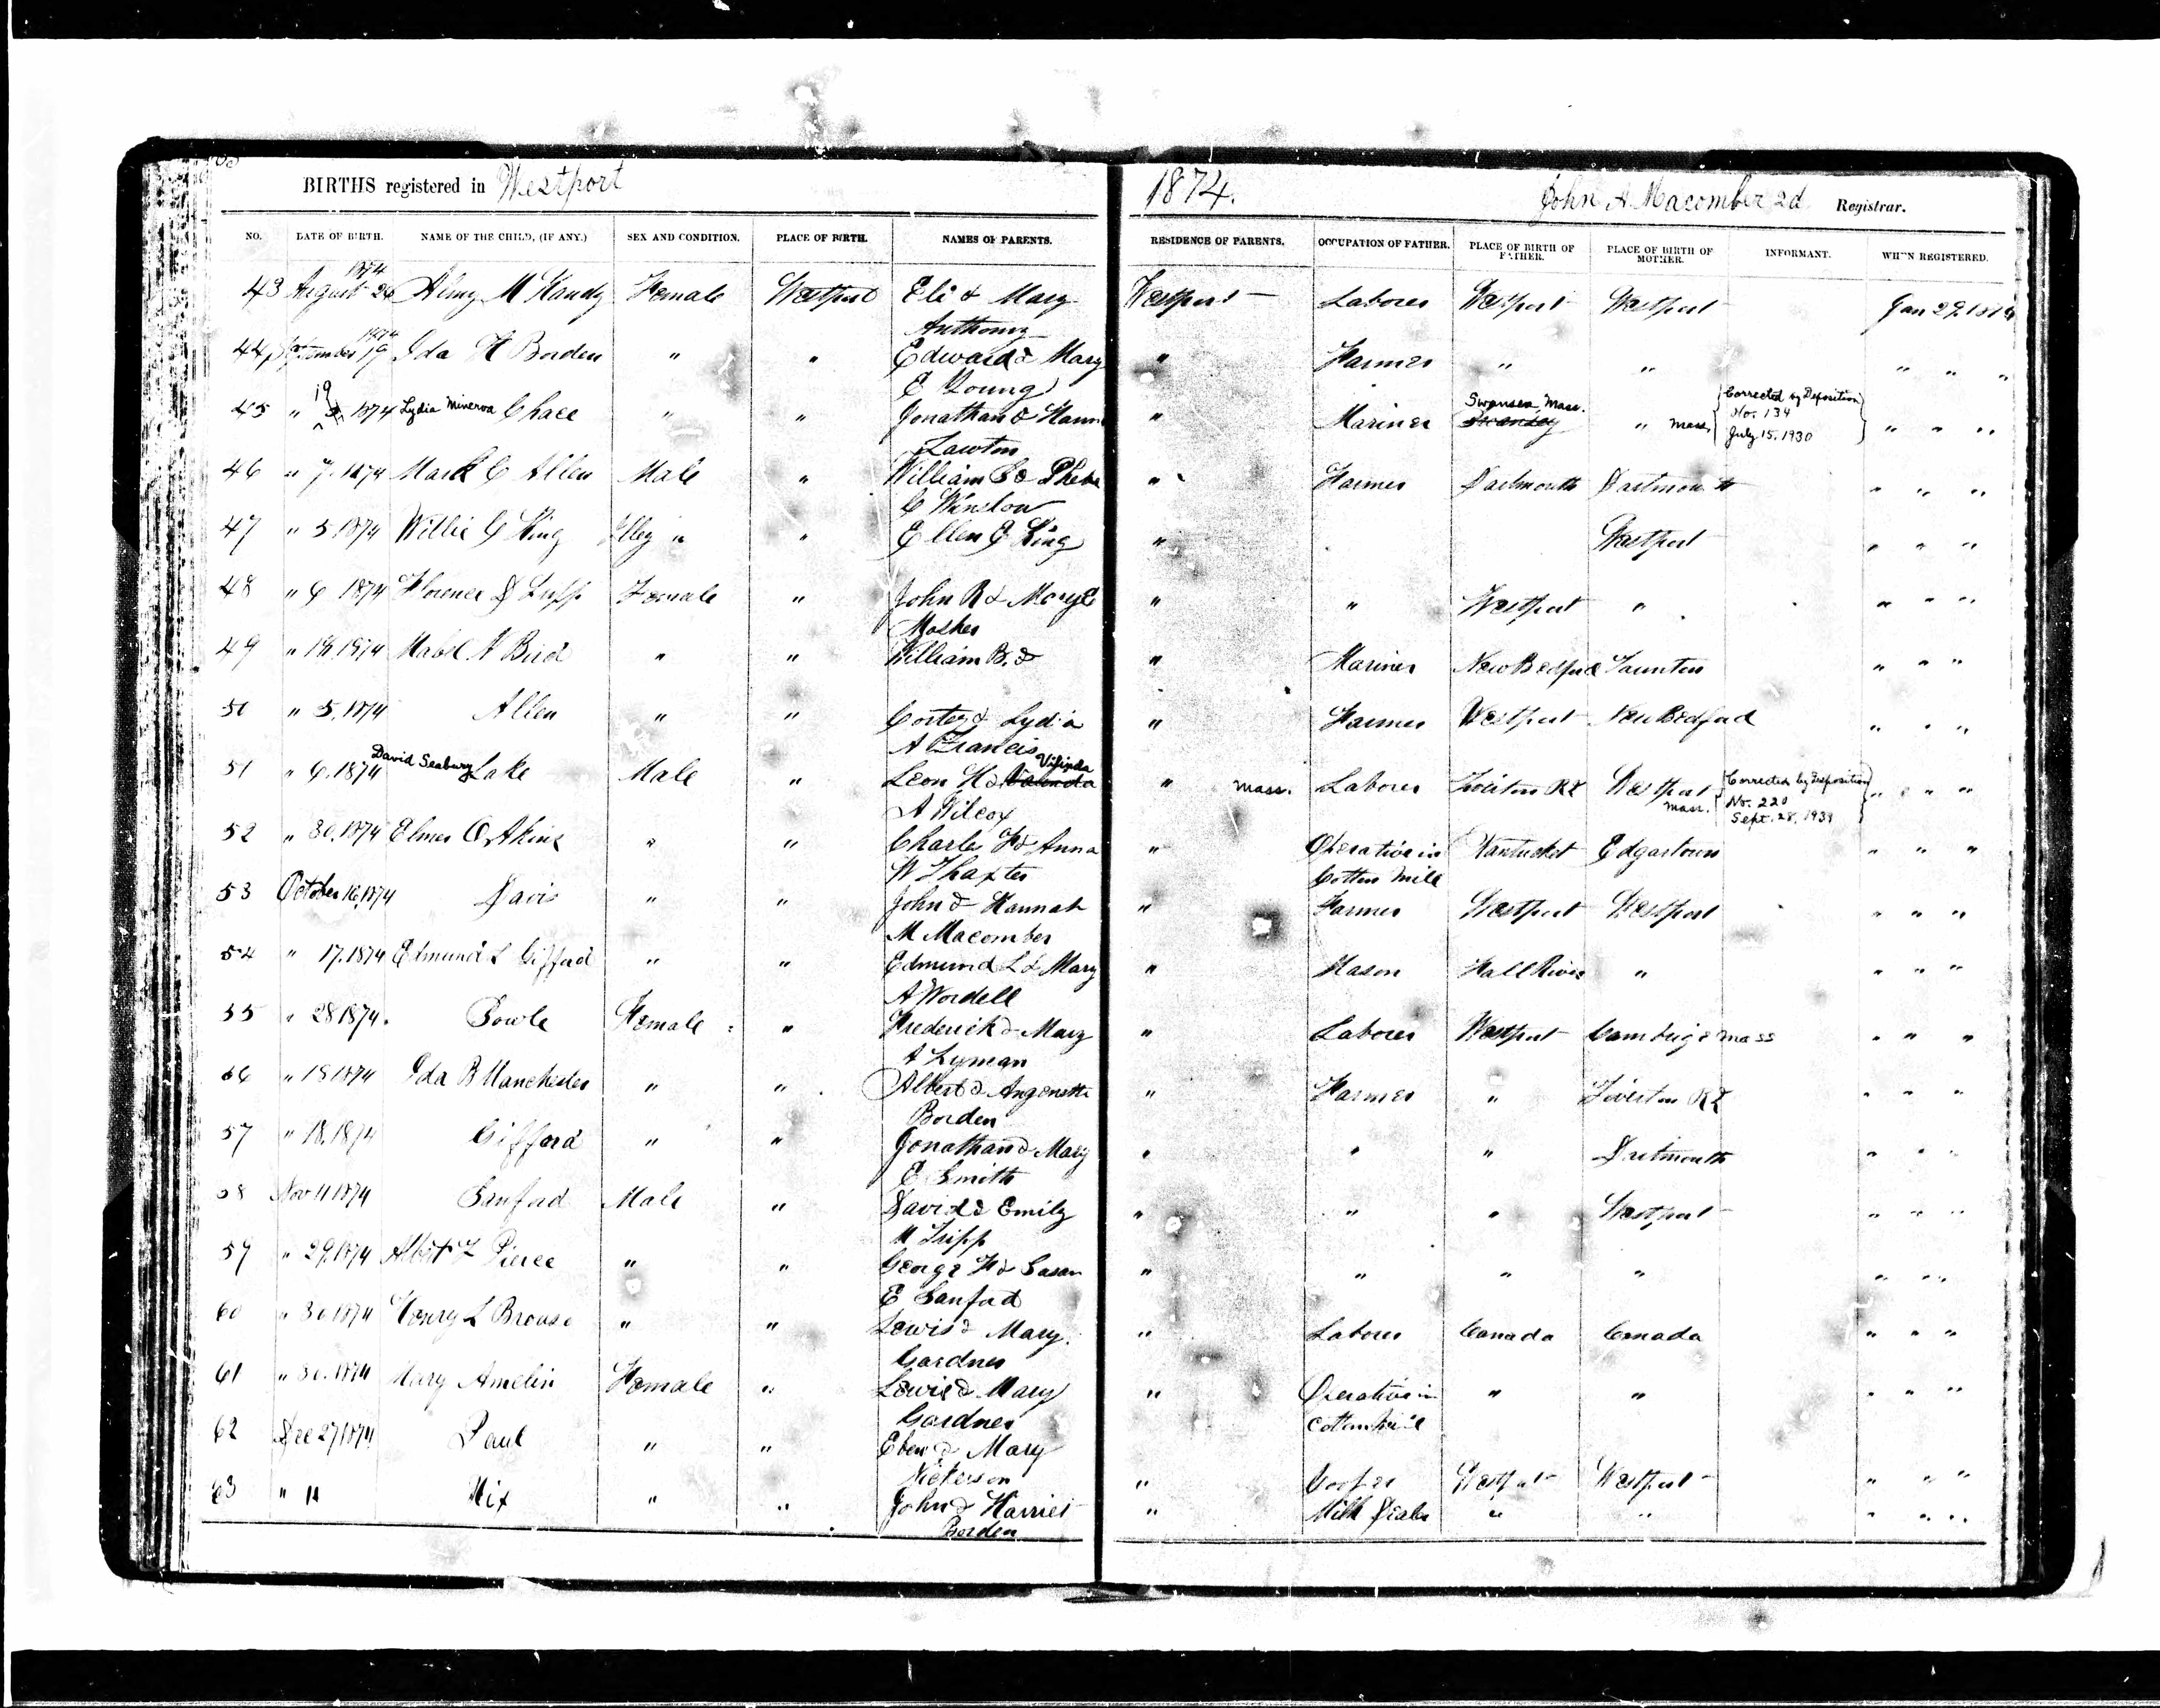 BIRTHS registered in Westport 1874. John A Macomber 2d Registrar.
NO. DATE OF BIRTH. NAME OF THE CHILD, (IF ANY.) SEX AND CONDITION. PLACE OF BIRTH. NAMES OF PARENTS. RESIDENCE OF PARENTS. OCCUPATION OF FATHER. PLACE OF BIRTH OF FATHER. PLACE OF BIRTH OF MOTHER. INFORMANT. WHEN REGISTERED.
1874
43 August 26 M Handy Female Westport Eli & Mary Westport Laborer Westport Westport Jan 29.
Anthony
1874
44 September 19 Ida H Borden " " Edward & Mary " Farmer " " " " "
E Young
19 Swansea, Mass. Corrected by Deposition
45 " 1874 Lydia Minerva Chace " " Jonathan & " Mariner Swansey " Mass. No. 134 " " "
Lawton July 15. 1930
46 " 7. 1874 Mark C Allen Male " William S & Phebe " Farmer Dartmouth Dartmouth " " "
C Winslow
47 " 5 1874 Willie G King Illeg " " Ellen E King " Westport " " "
48 " 6 1874 Florence Male Female " John R & Mary E " " Westport " " " "
Mosher
49 " 1874 Mabel A Bird " " William B. & " Mariner New Bedford Taunton " " "
50 " 5. 1874 Allen " " Cortez & Lydia " Farmer Westport New Bedford " " "
A Francis
51 " 6. 1874 David Seabury Lake Male " Leon H & Vilinda " Mass. Laborer Tiverton RI Westport Mass. Corrected by Deposition " " "
A Wilcox No. 220
Sept. 28, 1939
52 " 30. 1874 Elmer " " Charles F & Anna " Operative in Nantucket Edgartown " " "
W Thaxter Cotton Mill
53 October 16, 1874 Davis " " John & Hannah " Farmer Westport Westport " " "
M Macomber
54 " 17. 1874 Edmund L Gifford " " Edmund L & Mary " Mason Fall River " " " "
A Wordell
55 " 28 1874. Sowle Female " Frederick & Mary " Laborer Westport Cambrige Mass " " "
A Lyman
56 " 18 1874 Ida B Manchester " " Albert & " Farmer " Tiverton RI " " "
Borden
57 " 18. 1874 Gifford " " Jonathan & Mary " " " Dartmouth " " "
E Smith
58 Nov 11 1874 Sanford Male " David & Emily " " " Westport " " "
M Tripp
59 " 29. 1874 Albert L Pierce " " George F & Susan " " " " " " "
E Sanford
60 " 30 1874 Henry L " " Lewis & Mary " Laborer Canada Canada " " "
Gardner
61 " 30. 1874 Mary Amelin Female " Lewis & Mary " Operative in " " " " "
Gardner Cotton Mill
62 Dec 27 1874 Paul " " Eben & Mary " Cooper Westport Westport " " "
Nickerson
63 " 11 Hix " " John & Harriet " Milk Dealer " " " " "
Borden